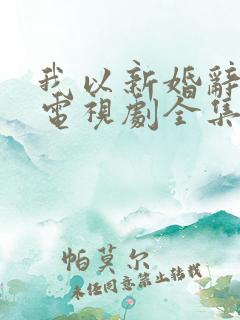 我以新婚辭
電視劇全集
帕莫尔
未经同意禁止转载